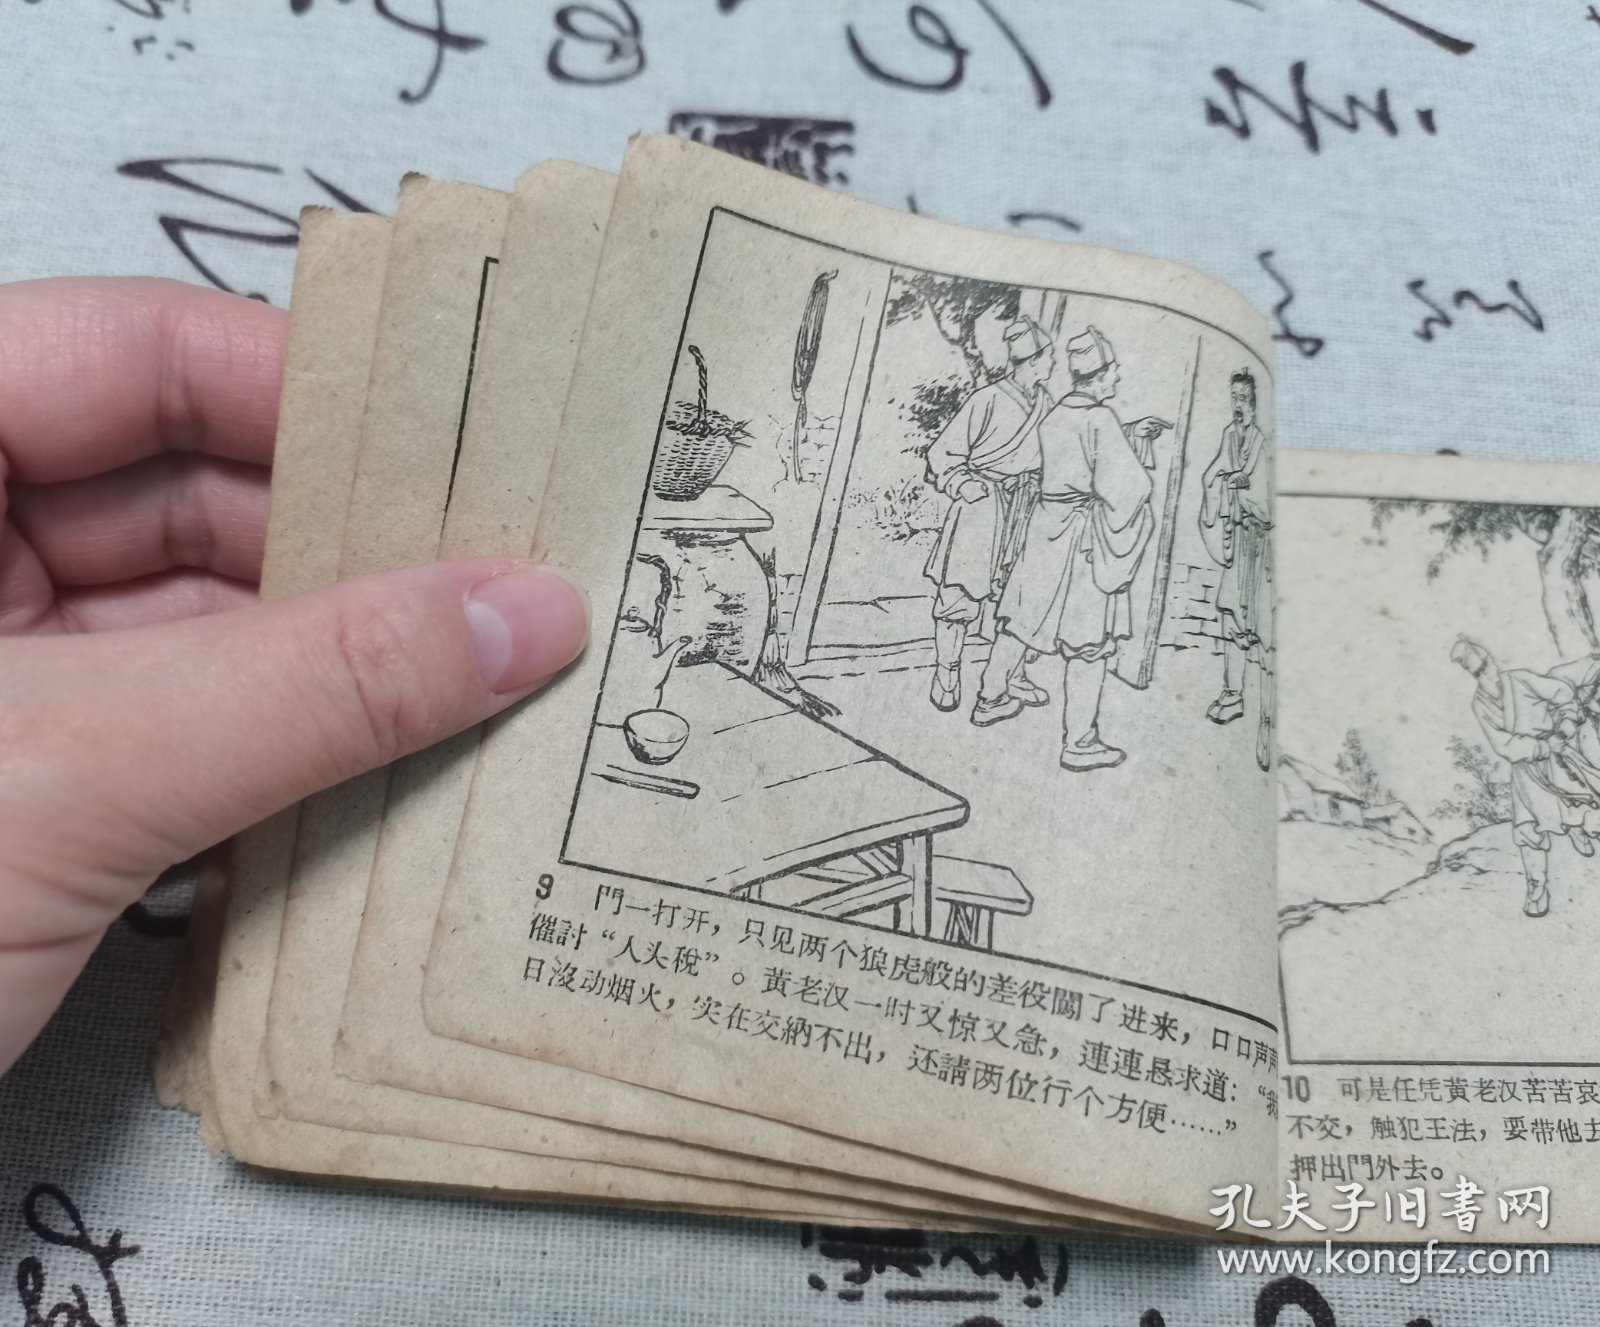 9 門一打开，只见两个狼虎般的差役闖了进来，口口声声
催討“人头稅”。黄老汉一时又惊又急，連連恳求道：“我
日沒动烟火，实在交納不出，还請两位行个方便……”
10 可是任凭黄老汉苦苦哀
不交，触犯王法，要带他去
押出門外去。
孔夫子旧書网
www.kongfz.com